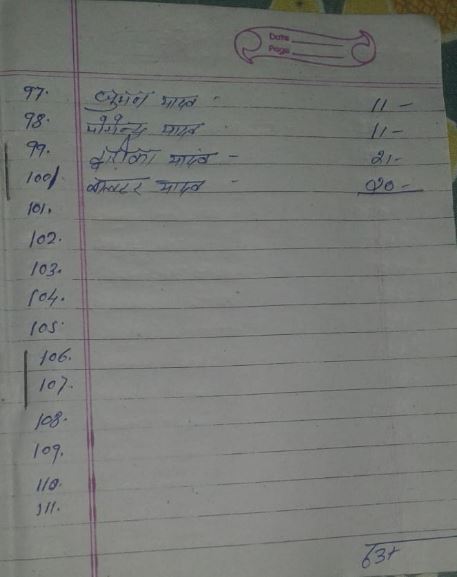 Date
Page
97. यादव - 11 -
98. योगेन्द्र यादव - 11 -
99. द्वारिका यादव - 21 -
100. यादव - 20 -
101.
102.
103.
104.
105.
106.
107.
108.
109.
110.
111.
63+